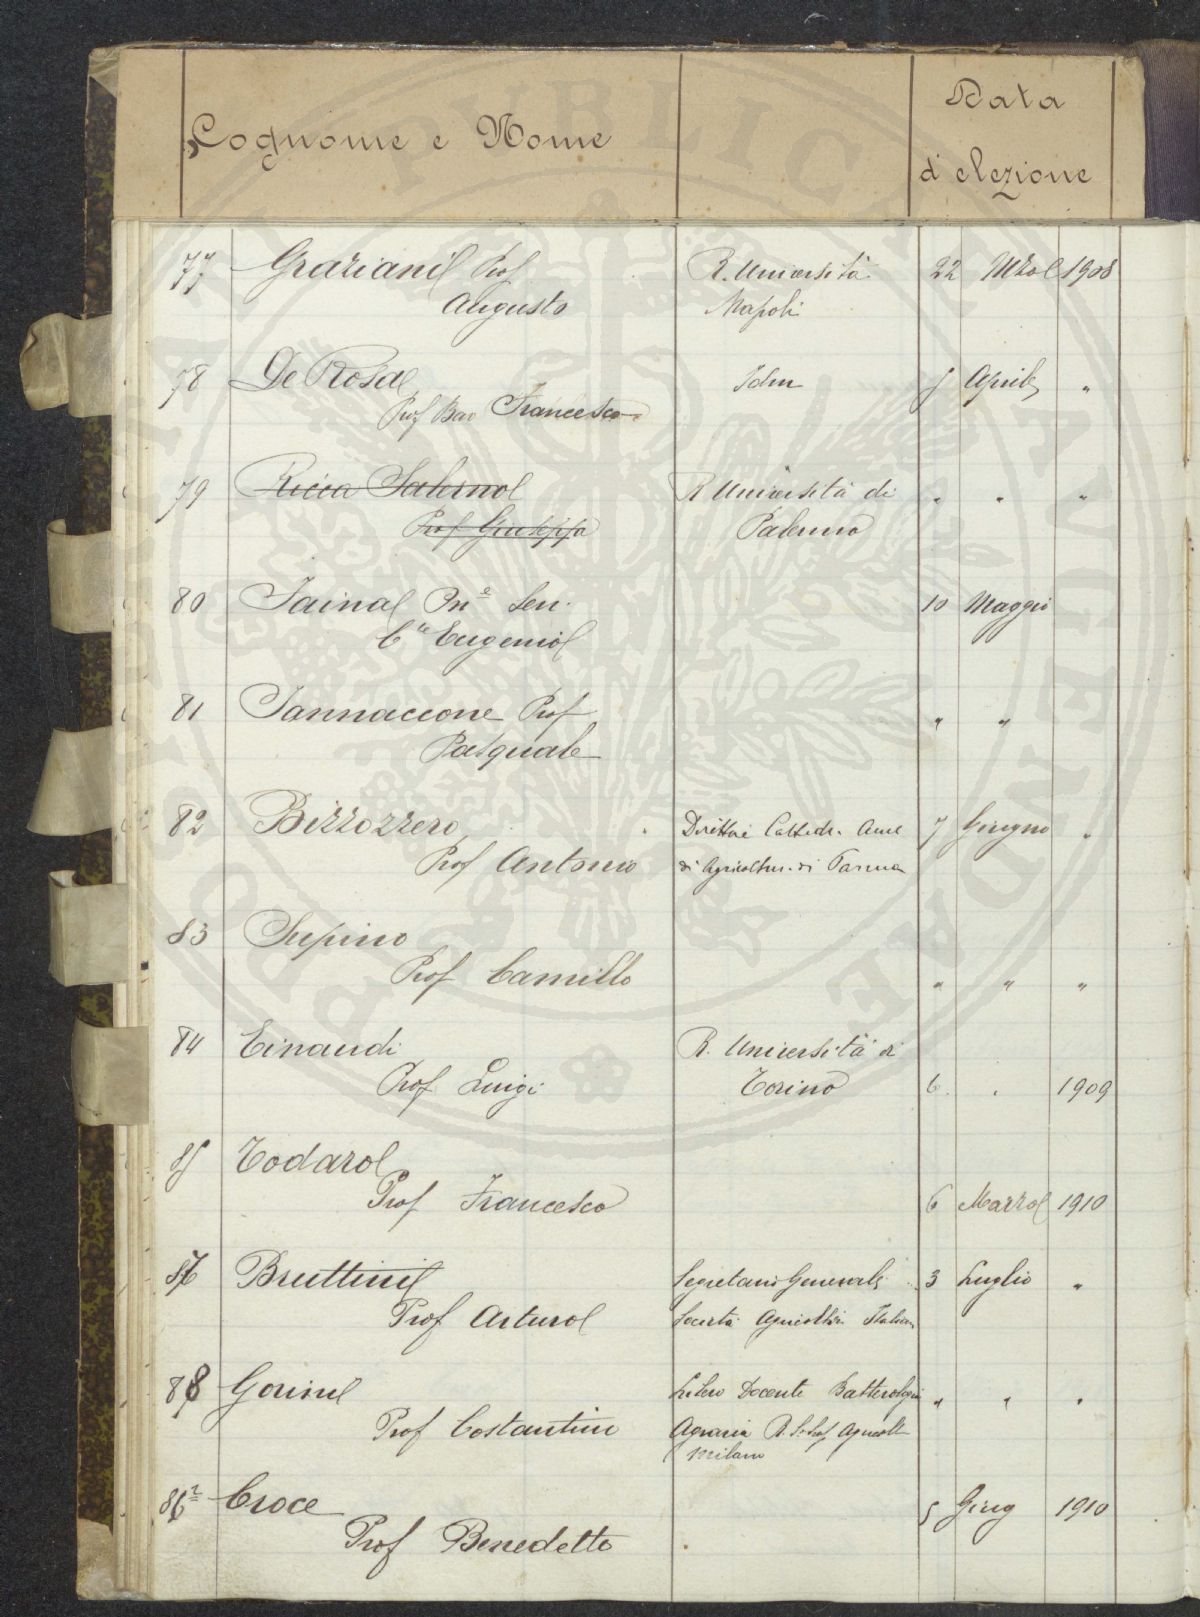 Cognome e Nome
Data
d'elezione
77 Graziani Prof R. Università 22 Mzo 1908
Augusto Napoli
78 De Rosa Idm 5 Aprile "
Prof Bar Francesco
79 Ricca Salerno R Università di " " "
Prof Giuseppe Palermo
80 Faina On.e Sen. 10 Maggio
C.te Eugenio
81 Jannaccone Prof " "
Pasquale
82 Bizzozzero Direttore Cattedr. Amb 7 Giugno "
Prof Antonio di Agricoltur. di Parma
83 Supino
Prof Camillo " " "
84 Einaudi R. Università di
Prof Luigi Torino 6 . 1909
85 Todaro
Prof Francesco 6 Marzo 1910
87 Bruttini Segretario Generale 3 Luglio "
Prof Arturo Società Agricoltori Italian
88 Gorini Libero Docente Batterologia " " "
Prof Costantino Agraria R. S. Sup Agricolt
Milano
86 Croce 5 Giug 1910
Prof Benedetto
PUBLICAE UTILITATI AUGENDAE